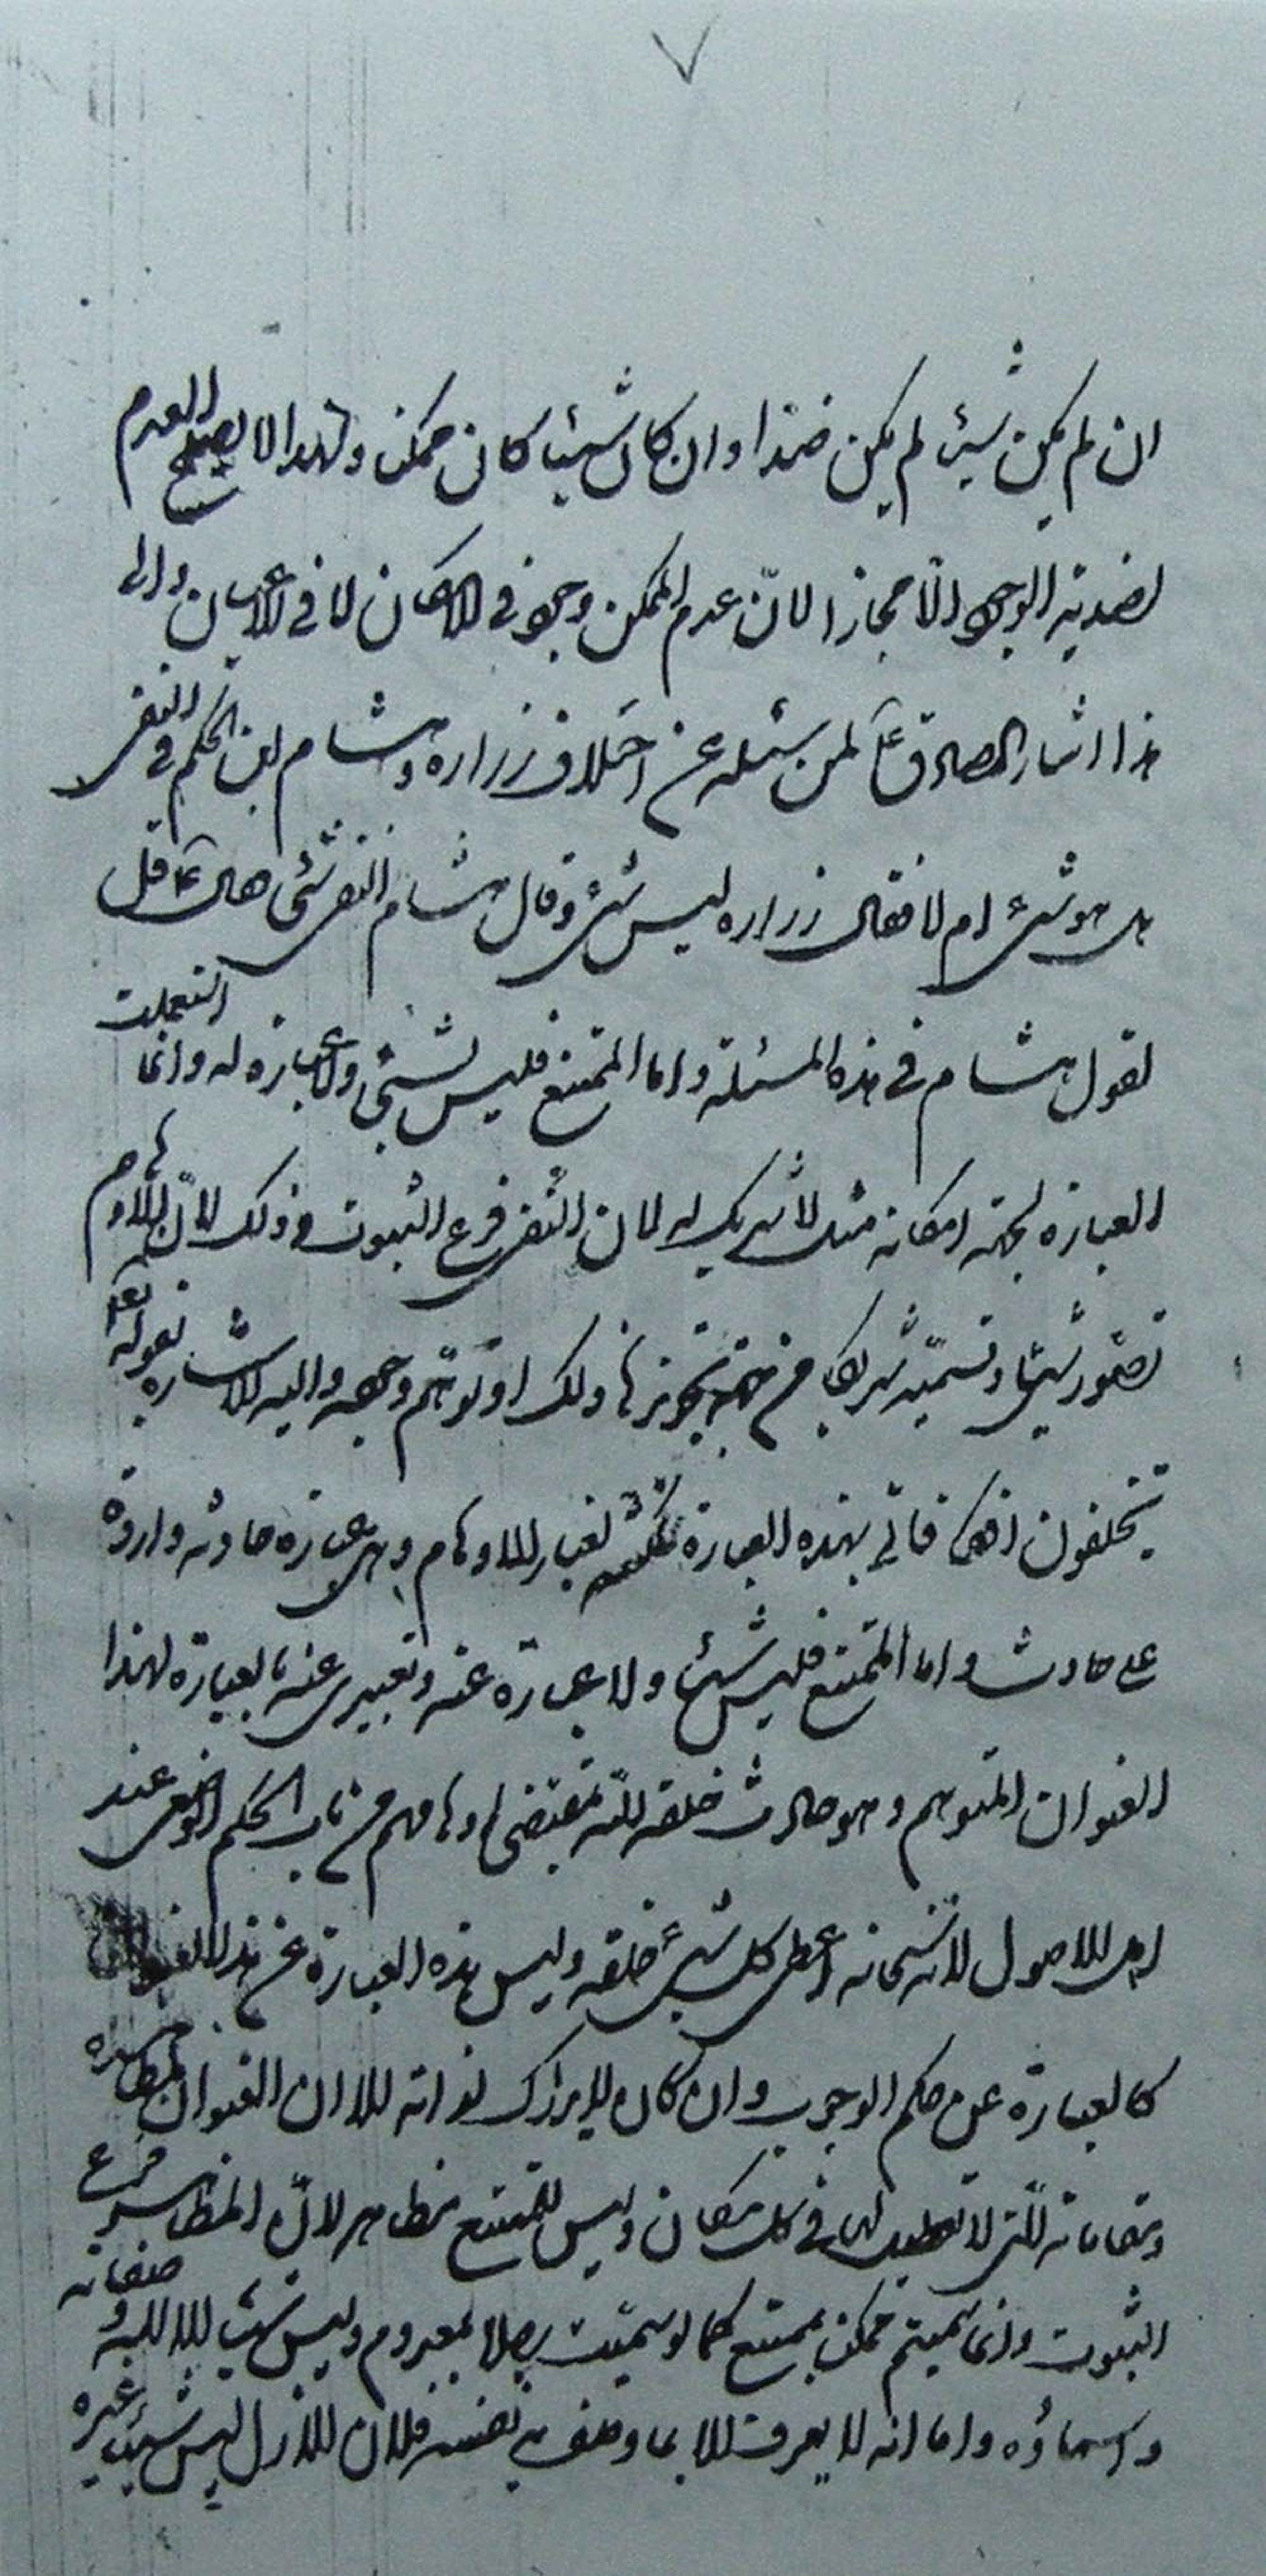 ان لم يكن شيئا لم يكن ضدا وان كان شيئا كان ممكن ولهذا لا يصلح العدم
لضدية الوجود الا مجازا لانّ عدم الممكن وجود في الامكان لا في الاعيان والى
هذا اشار الصادق ع لمن سئله عن اختلاف زراره وهشام ابن الحكم في النفى
هل هو شىء ام لا فقال زراره ليس بشىء وقال هشام النفى شئ فقال ع قل
بقول هشام في هذه المسئلة واما الممتنع فليس بشئ ولا عبارة له وانما استعملت
العبارة لجهة امكانه مثل لا شريك له لان النفى فرع الثبوت وذلك لانّ الاوهام
تصوّر شيئا وتسمّيه شريكا من جهة تجويزها ذلك او توهّم وجوده واليه الاشاره بقوله تع
تخلقون افكا فاتى بهذه العبارة لغبار الاوهام وهى عبارة حادثه واردة
على حادث واما الممتنع فليس شيئا ولا عبارة عنه وتعبيرى عنه بالعبارة لهذا
العنوان المتوهم وهو حادث خلقه الله بمقتضى اوهامهم من باب الحكم الوضعى عند
اهل الاصول لانه سبحانه اعطى كل شىء خلقه وليس هذه العبارة عن هذا
كالعبارة عن حكم الوجوب وان كان لا يدرك لذاته الا ان العنوان لمظاهره
ومقاماته الّتى لا تعطيل لها في كل مكان وليس للممتنع مظاهر لانّ المظاهر فرع
الثبوت وانما سميتم ممكن بممتنع كما لو سمّيت رجلا بمعدوم وليس شيئا الا الله و صفاته
واسماؤه واما انه لا يعرف الا بما وصف به نفسه فلان الازل ليس شيئا غيره